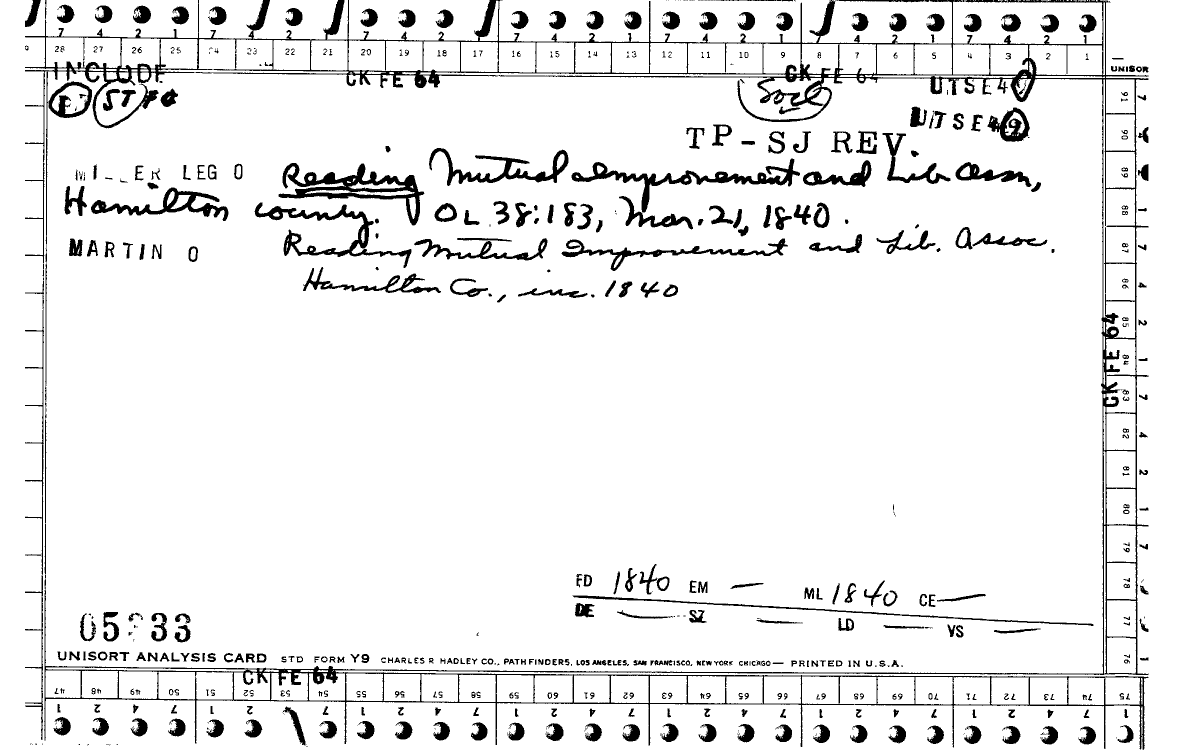 7 4 2 1 7 4 2 1 7 4 2 1 7 4 2 1 7 4 2 1 7 4 2 1 7 4 2 1
28 27 26 25 24 23 22 21 20 19 18 17 16 15 14 13 12 11 10 9 8 7 6 5 4 3 2 1
UNISOR
INCLUDE CK FE 64 CK FE 64 UTSE4
ST Socl UTSE49
TP-SJ REV.
MILLER LEG O Reading Mutual Improvement and Lib Assn,
Hamilton county. OL 38:183, Mar. 21, 1840.
MARTIN O Reading Mutual Improvement and Lib. Assoc.
Hamilton Co., inc. 1840
91 90 89 88 87 86 85 84 83 82 81 80 79 78 77 76
CK FE 64
FD 1840 EM — ML 1840 CE —
DE — SZ — LD — VS —
UNISORT ANALYSIS CARD STD FORM Y9 CHARLES R HADLEY CO., PATHFINDERS, LOS ANGELES, SAN FRANCISCO, NEW YORK CHICAGO — PRINTED IN U.S.A.
CK FE 64
47 48 49 50 51 52 53 54 55 56 57 58 59 60 61 62 63 64 65 66 67 68 69 70 71 72 73 74 75